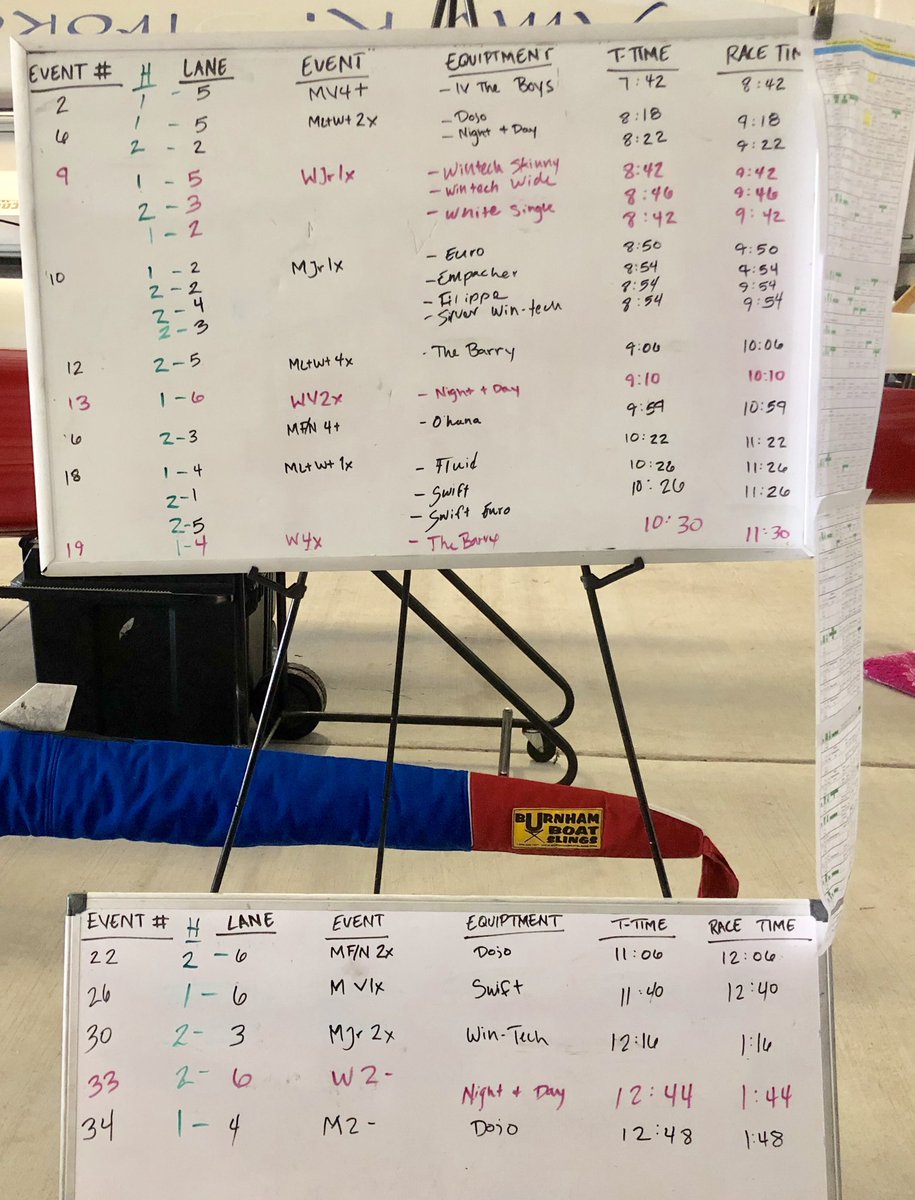 EVENT # H LANE EVENT EQUIPTMENT T-TIME RACE TIM
2 1 - 5 MV4+ - IV The Boys 7:42 8:42
6 1 - 5 MLtWt 2x - Dojo 8:18 9:18
2 - 2 - Night + Day 8:22 9:22
9 1 - 5 WJr1x - Wintech Skinny 8:42 9:42
2 - 3 - Wintech Wide 8:46 9:46
1 - 2 - White Single 8:42 9:42
10 1 - 2 MJr1x - Euro 8:50 9:50
2 - 2 - Empacher 8:54 9:54
2 - 4 - Filippe 8:54 9:54
2 - 3 - Silver Win-tech 8:54 9:54
12 2 - 5 MLtWt 4x - The Barry 9:06 10:06
13 1 - 6 WV2x - Night + Day 9:10 10:10
9:59 10:59
6 2 - 3 MF/N 4+ - O'hana 10:22 11:22
18 1 - 4 MLtWt 1x - Fluid 10:26 11:26
2 - 1 - Swift 10:26 11:26
2 - 5 - Swift Euro
19 1 - 4 W4x - The Barry 10:30 11:30
BURNHAM
BOAT
SLINGS
EVENT # H LANE EVENT EQUIPTMENT T-TIME RACE TIME
22 2 - 6 MF/N 2x Dojo 11:06 12:06
26 1 - 6 M V1x Swift 11:40 12:40
30 2 - 3 MJr 2x Win-Tech 12:16 1:16
33 2 - 6 W 2- Night + Day 12:44 1:44
34 1 - 4 M2- Dojo 12:48 1:48